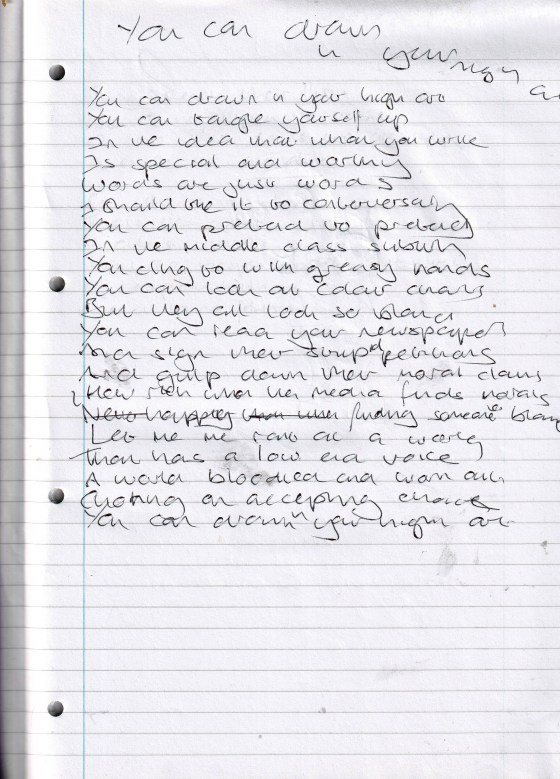 You can drown
in your high a
You can drown in your high art
You can tangle yourself up
In the idea that what you write
Is special and
Words are just words
I should
You can pretend to pretend
In the middle class suburb
You cling to with greasy hands
You can look at colour charts
But they all look so bland
You can read your newspapers
And sign their stupid petitions
And gulp down their moral claims
How when the media finds
happy when finding someone blame
Let me talk at a
That has a low end voice
A world bloodied and worn out
on accepting choice
You can drown in your high art